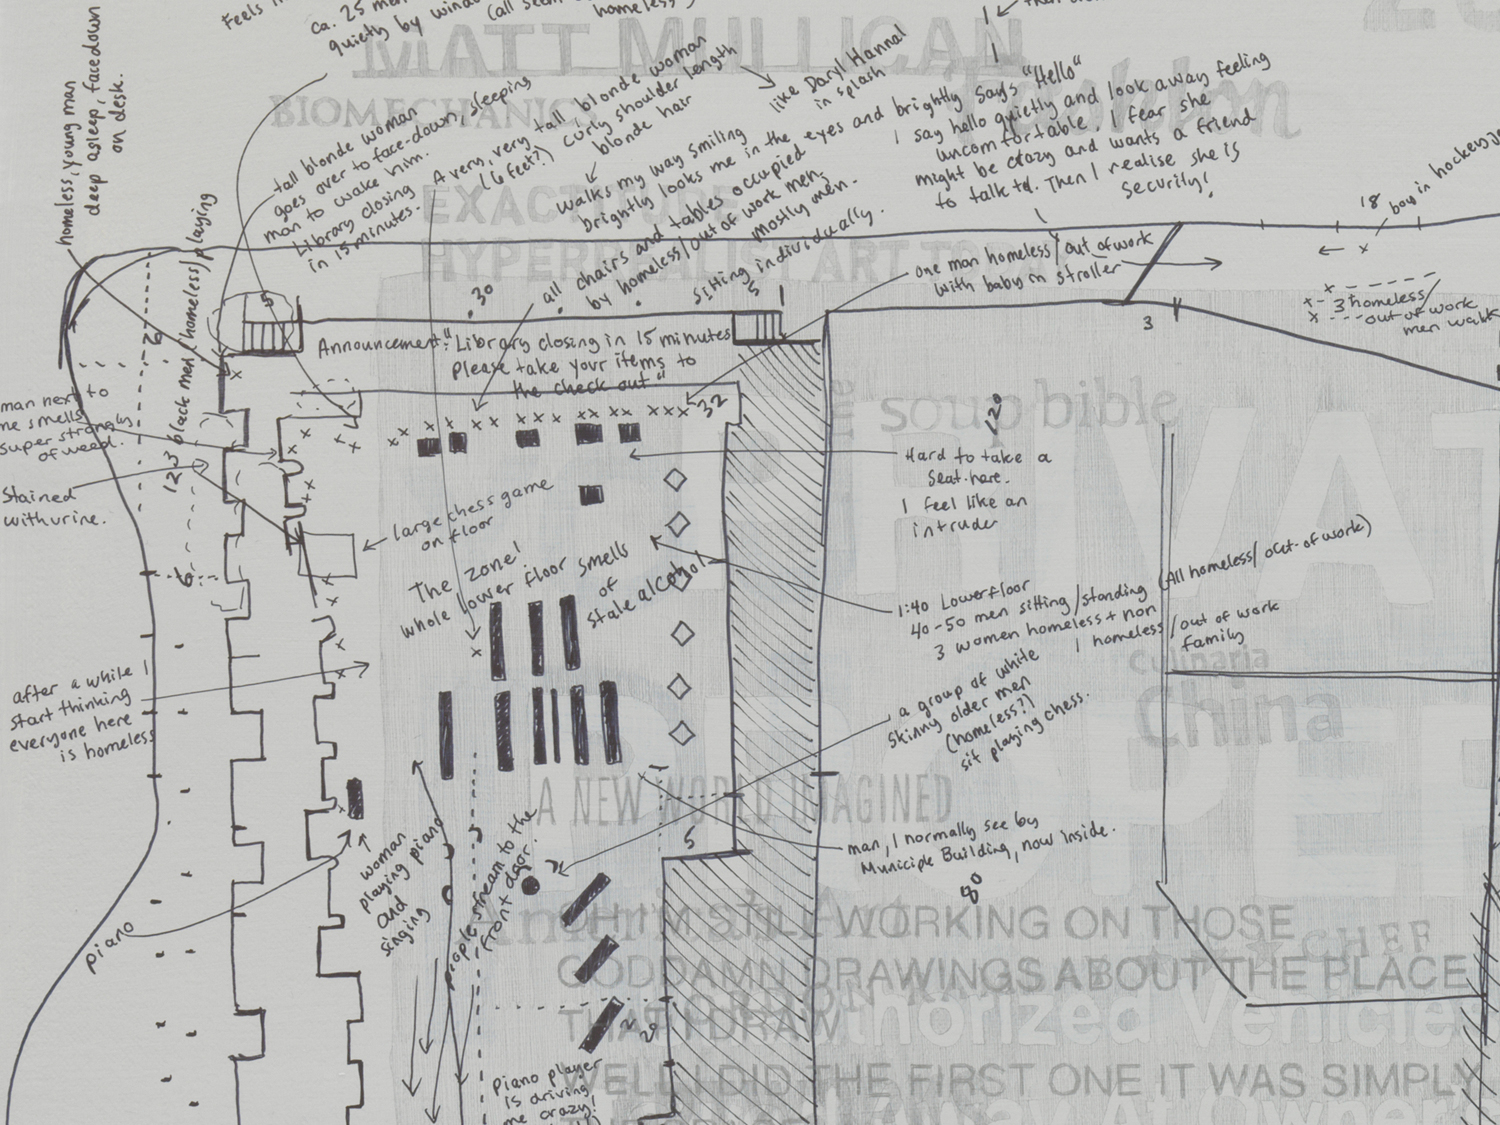 Feels
ca. 25 men
quietly by
MATT MULLICAN
BIOMECHANICS
homeless, young man
deep asleep, face down
on desk.
tall blonde woman
goes over to face-down, sleeping
man to wake him.
Library closing
in 15 minutes.
A very, very tall blonde woman
(6 feet?) curly shoulder length
blonde hair
like Daryl Hannal
in splash
walks my way smiling
brightly looks me in the eyes and brightly says "Hello"
I say hello quietly and look away feeling
uncomfortable. I fear she
might be crazy and wants a friend
to talk to. Then I realise she is
security!
all chairs and tables occupied
by homeless/out of work men,
mostly men.
sitting individually.
EXACTITUDE
HYPERREALIST ART TO
18
bow in
one man homeless/out of work
with baby in stroller
3 homeless/
out-of-work
men walk
3
123 black men (homeless) playing
5
30
5
Announcement: "Library closing in 15 minutes
please take your items to
the check out"
32
man next to
me smells
super strongly
of weed.
Stained
with urine.
6
large chess game
on floor
Hard to take a
seat here.
I feel like an
intruder
120
soup bible
The zone!
whole lower floor smells
of
stale alcohol
1:40 Lowerfloor
40-50 men sitting/standing (All homeless/out-of-work)
3 women homeless + non
1 homeless/out of work
family
PRIVATE
Culinaria
China
after a while I
start thinking
everyone here
is homeless
a group of white
skinny older men
(homeless?)
sit playing chess.
A NEW WORLD IMAGINED
PROPER
5
man, I normally see by
Municiple Building, now inside.
80
piano
woman
playing piano
and
singing
people stream to the
front door.
OH I'M STILL WORKING ON THOSE
CHEF
GODDAMN DRAWINGS ABOUT THE PLACE
THAT I DRAW.
Authorized Vehicles
WELL I DID THE FIRST ONE IT WAS SIMPLY
piano player
is driving
me crazy!